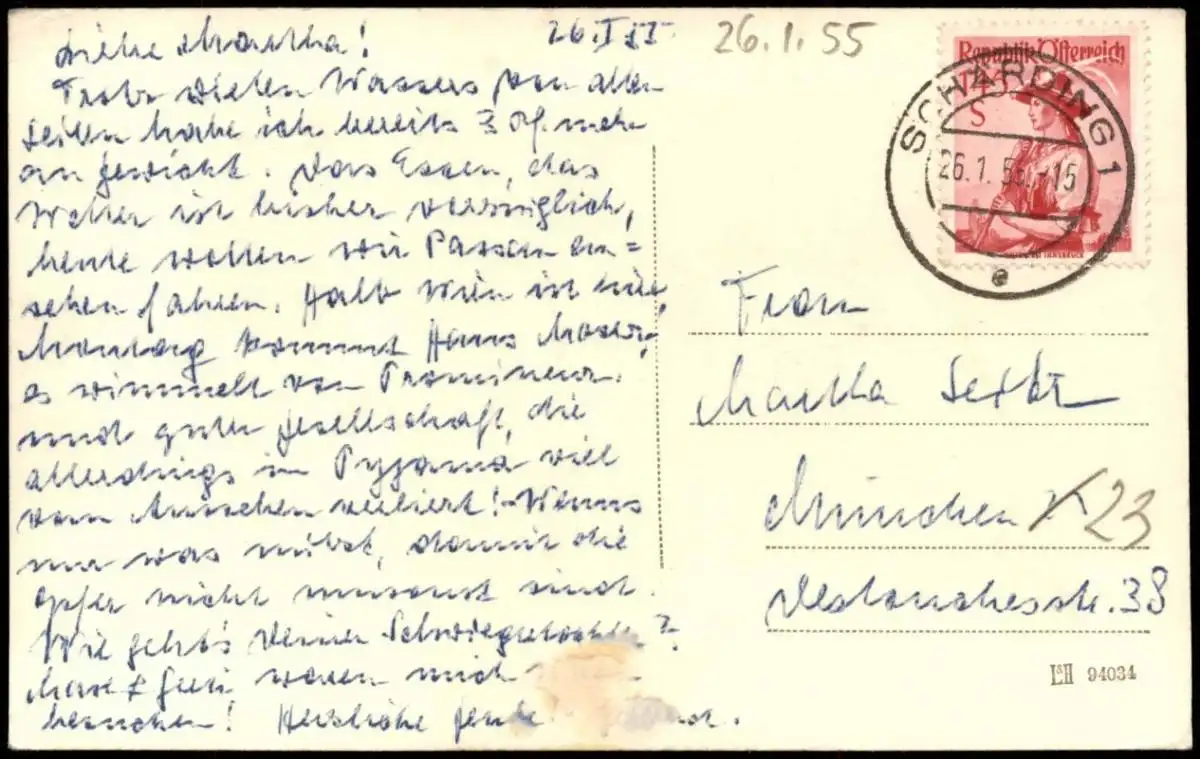 Liebe Martha!
26.I 55.
26.1.55
Trotz vielen Wassers von allen
Seiten habe ich bereits 3 Pf. mehr
an Gewicht. Das Essen, das
Wetter ist bisher vorzüglich,
heute wollen wir Passau an=
sehen fahren. Halb Wien ist hier
Montag kommt Hans Moser,
es wimmelt von Prominenz.
und guter Gesellschaft, die
allerdings im Pyjama viel
vom Aussehen verliert! Wenns
nur was nützt, damit die
Opfer nicht umsonst sind.
Wie geht's Deiner Schwiegertochter?
Max & waren mich
besuchen! Herzliche
Republik Österreich
S
SCHÄRDING 1
26.1.55 -15
e
Frau
Martha
München 23
38
L&H 94034